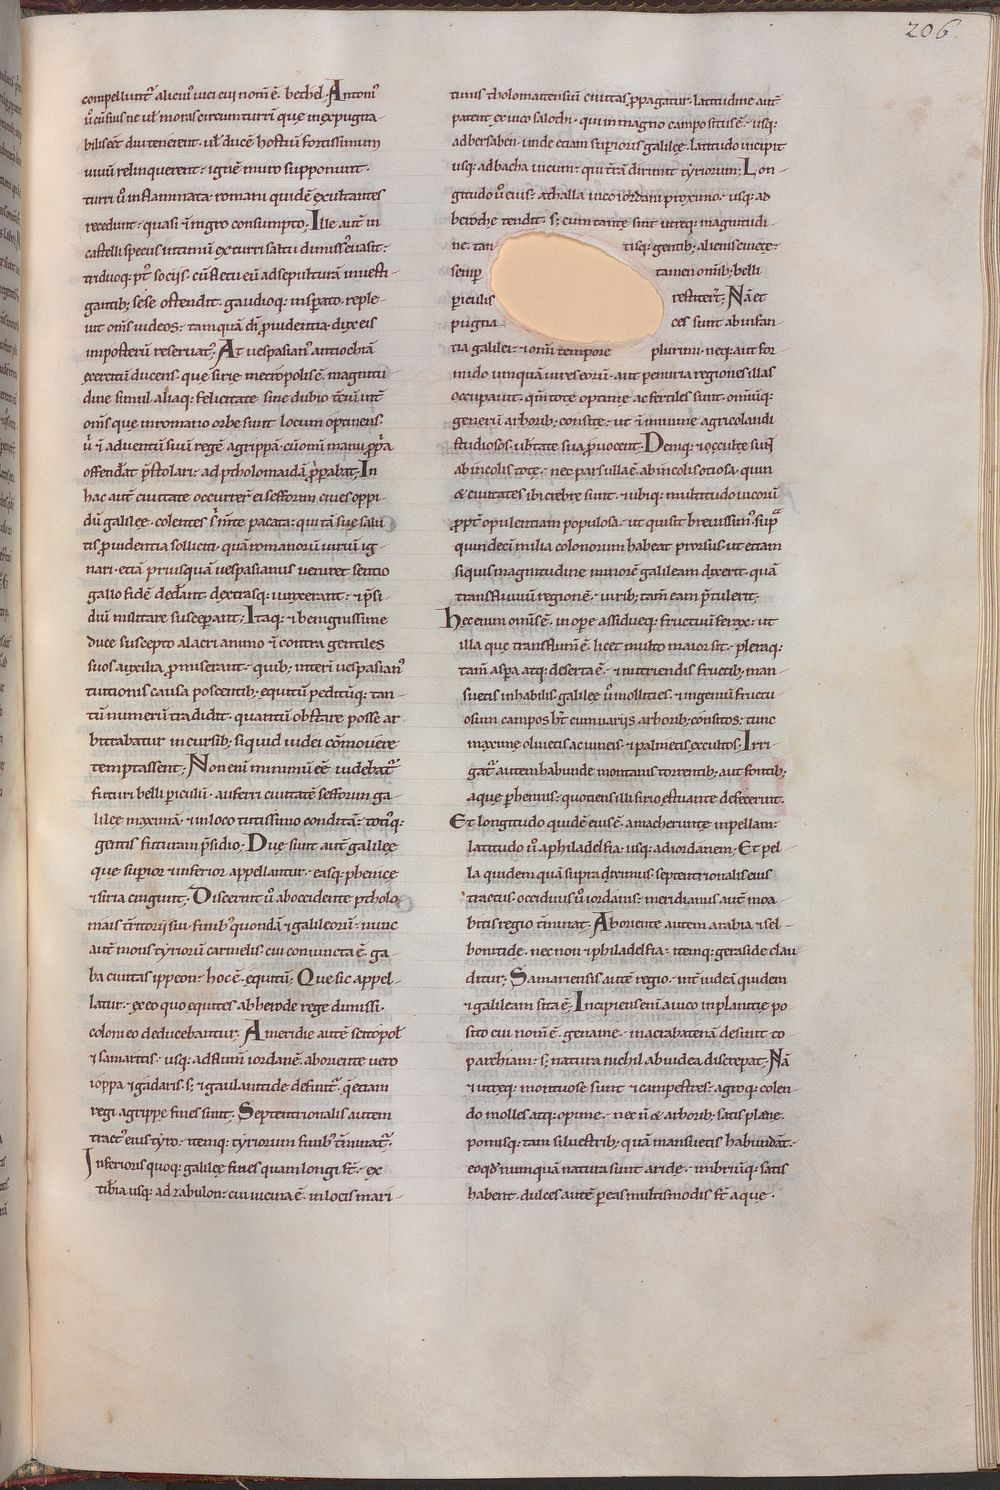 206.
compellunt᷑ alicuiꝰ uici cui nom̅ e̅. bethel. Antoniꝰ
u̓ cu̅ suis ne ul̓ moras circum turri̅ que inexpugna-
bilis eet diu tenerent. ul̓ duce̅ hostiu̅ fortissimum
uiuu̅ relinquerent. igne̅ muro supponunt.
turri u̓ inflammata. romani quide̅ exultantes
recedunt. quasi i̅ nigro consumpto. Ille aut̅ in
castelli specus intimu̅ ex turri saltu dimissꝰ euasit.
triduoq; pꝰt socijs. cu̅ fletu eu̅ ad sepultura̅ inuesti-
gantib; sese ostendit. gaudioq; insperato. reple-
uit om̅s iudeos. tamqua̅ di̅ ꝓuidentia. dux eis
imposteru̅ reseruatꝰ. At uespasianꝰ antiochia̅
exercitu̅ ducens. que sirie metropolis e̅. magnitu-
dine simul aliaq; felicitate. sine dubio tc̅iu̅ int̅
om̅s que in romano orbe sunt locum optinens.
u̓i i̅ aduentu̅ suu̅ rege̅ agrippa̅. cu̅ om̅i manu ꝓp̱a
offenderat p̅stolari. ad ptholomaida̅ ꝓperabat. In
hac aut̅ ciuitate occurrer̅ ei sefforim ciues oppi-
du̅ galilee. colentes sum̅te pacata. qui ta̅ sue salu
tis ꝓuidentia solliciti. qua̅ romanoru̅ uiriu̅ ig-
nari. etia̅ priusqua̅ uespasianus ueniret sentio
gallo fide̅ dederant. dextrasq; iunxerant. ⁊ p̅si-
diu̅ militare susceperant. Itaq; ⁊ benignissime
duce suscepto alacri animo i̅ contra gentiles
suos auxilia ꝓmiserant. quib; interi̅ uespasianꝰ
tuitionis causa poscentib; equitu̅ peditu̅q; tan-
tu̅ numeru̅ tradidit. quantu̅ obstare posse ar-
bitrabatur incursib; siquid iudei co̅mouere
temptassent. Non eni̅ minimu̅ ee̅ uidebat᷑
futuri belli periculu̅. auferri ciuitate̅ sefforim ga-
lilee maxima̅. ⁊ in loco tutissimo condita̅. totiꝰq;
gentis futuram p̅sidio. Due sunt aut̅ galilee
que superior ⁊ inferior appellantur. easq; phenice
⁊ siria cingunt. Discernit u̓ ab occidente ptholo
mais t̅ritorij sui finib; quonda̅ ⁊ galileoru̅. nunc
aut̅ mons tyrioru̅ carmelis. cui coniuncta e̅. ga-
ba ciuitas ippeon. hoc e̅. equitu̅. Que sic appel-
latur. ex eo quo equites ab herode rege dimissi.
colon eo deducebantur. A meridie aute̅ scitopol̓
⁊ samaritis. usq; ad flum̅ iordane̅. ab oriente uero
ioppa ⁊ gadaris. s; ⁊ gaulantide definit᷑. q̅ etiam
regi agrippe fines sunt. Septentrionalis autem
tractꝰ eius tyro. itemq; tyriorum finibꝰ t̅minat᷑.
Inferioris quoq; galilee fines quam longi st̅. ex
tib̅ria usq; ad zabulon. cui uicina e̅. in locis mari-
timis tholomaitensiu̅ ciuitas ꝓpagatur. latitudine aut̅
patent ex uico saloth. qui in magno campo situs e̅. usq;
ad bersaben. unde etiam superioris galilee. latitudo incipit
usq; ad bacha uicum. qui t̅ra̅ dirimit tyriorum. Lon-
gitudo u̓ eius. a thalla uico iordani proximo. usq; ad
beroche tendit. s; cum tante sint utreq; magnitudi-
ne. tan tisq; gentib; alienis cincte.
semp tamen om̅ib; belli
periculis restiter̅t. Na̅ et
pugna ces sunt ab infan-
tia galilei. ⁊ om̅i tempore plurimi. neq; aut for-
mido unqua̅ uires eoru̅. aut penuria regiones illas
occupauit. qm̅ tote optime ac fertiles sunt. om̅iu̅q;
generu̅ arborib; consite. ut i̅ minime agricolandi
studiosos. ubertate sua ꝓuocent. Deniq; ⁊ occulte sunt
ab incolis tote. nec pars ulla e̅ ab incolis otiosa. quin
& ciuitates ibi crebre sunt. ⁊ ubiq; multitudo uicoru̅
ꝓpt̅ opulentiam populosa. ut quisit breuissimꝰ. sup̱a
quindeci̅ milia colonorum habeat prorsus. ut etiam
siquis magnitudine minore̅ galileam dixerit. qua̅
trans fluuiu̅ regione̅. uirib; tam̅ eam p̅tulerit.
hec enim om̅is e̅. in opere assidueq; fructuu̅ ferax. ut
illa que trans flum̅ e̅. licet multo maior sit. pleraq;
tam̅ aspera atq; deserta e̅. ⁊ nutriendis fructib; man-
suetis inhabilis. galilee u̓ mollities. ⁊ ingeniu̅ fructu
osum campos h̅t cum uarijs arborib; consitos. tunc
maxime oliuetis ac uineis. ⁊ palmetis excultos. Irri-
gat᷑ autem habunde montanis torrentib; aut fontib;
aque perhennis. quotiens illi sirio estuante defecerint.
Et longitudo quide̅ eius e̅. a macherunte in pellam.
latitudo u̓ a philadelfia. usq; ad iordanem. Et pel-
la quidem qua̅ supra dixim̅us. septentrionalis eius
tractus. occiduus u̓ iordanis. meridianus aut̅ moa-
bitis regio t̅minat. Ab oriente autem arabia ⁊ sel-
bonitide. nec non ⁊ philadelfia. itemq; geraside clau
ditur. Samariensis aute̅ regio. int̅ iudea̅ quidem
⁊ galileam sita e̅. Incipiens eni̅ a uico in planitie po
sito cui nom̅ e̅. gename. in acrabatena̅ desinit to-
parchiam. s; natura nichil ab iudea discrepat. Na̅
& utreq; montuose sunt ⁊ campestres. agroq; colen-
do molles atq; opime. nec n̅ & arborib; satis plene
pomisq; tam siluestrib; qua̅ mansuetis habundat.
eoq̅d numqua̅ natura sunt aride. imbriu̅q; satis
habent. dulces aute̅ per eas multismodis st̅ aque.